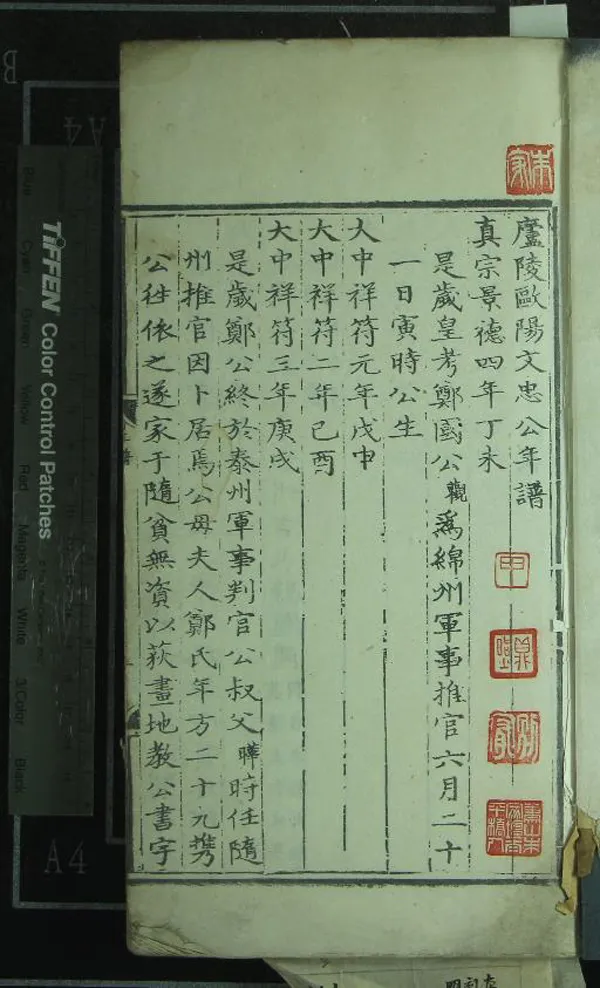 廬陵歐陽文忠公年譜
真宗景德四年丁未
是歲皇考鄭國公觀爲綿州軍事推官六月二十
一日寅時公生
大中祥符元年戊申
大中祥符二年己酉
大中祥符三年庚戌
是歲鄭公終於泰州軍事判官公叔父曄時任隨
州推官因卜居焉公母夫人鄭氏年方二十九携
公往依之遂家于隨貧無資以荻畫地教公書字
甲
TIFFEN Color Control Patches
Blue
Cyan
Green
Yellow
Red
Magenta
White
3/Color
Black
A4
A4
B